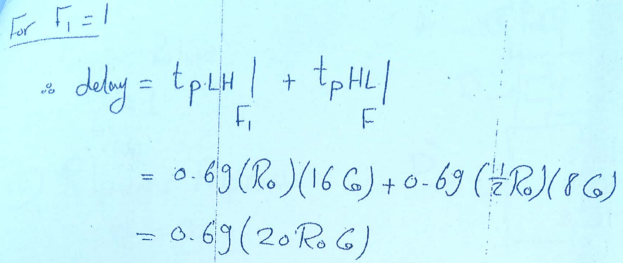 For F₁ = 1
∴ delay = tpLH|F₁ + tpHL|F
= 0.69(R₀)(16C₀) + 0.69(½R₀)(8C₀)
= 0.69(20R₀C₀)